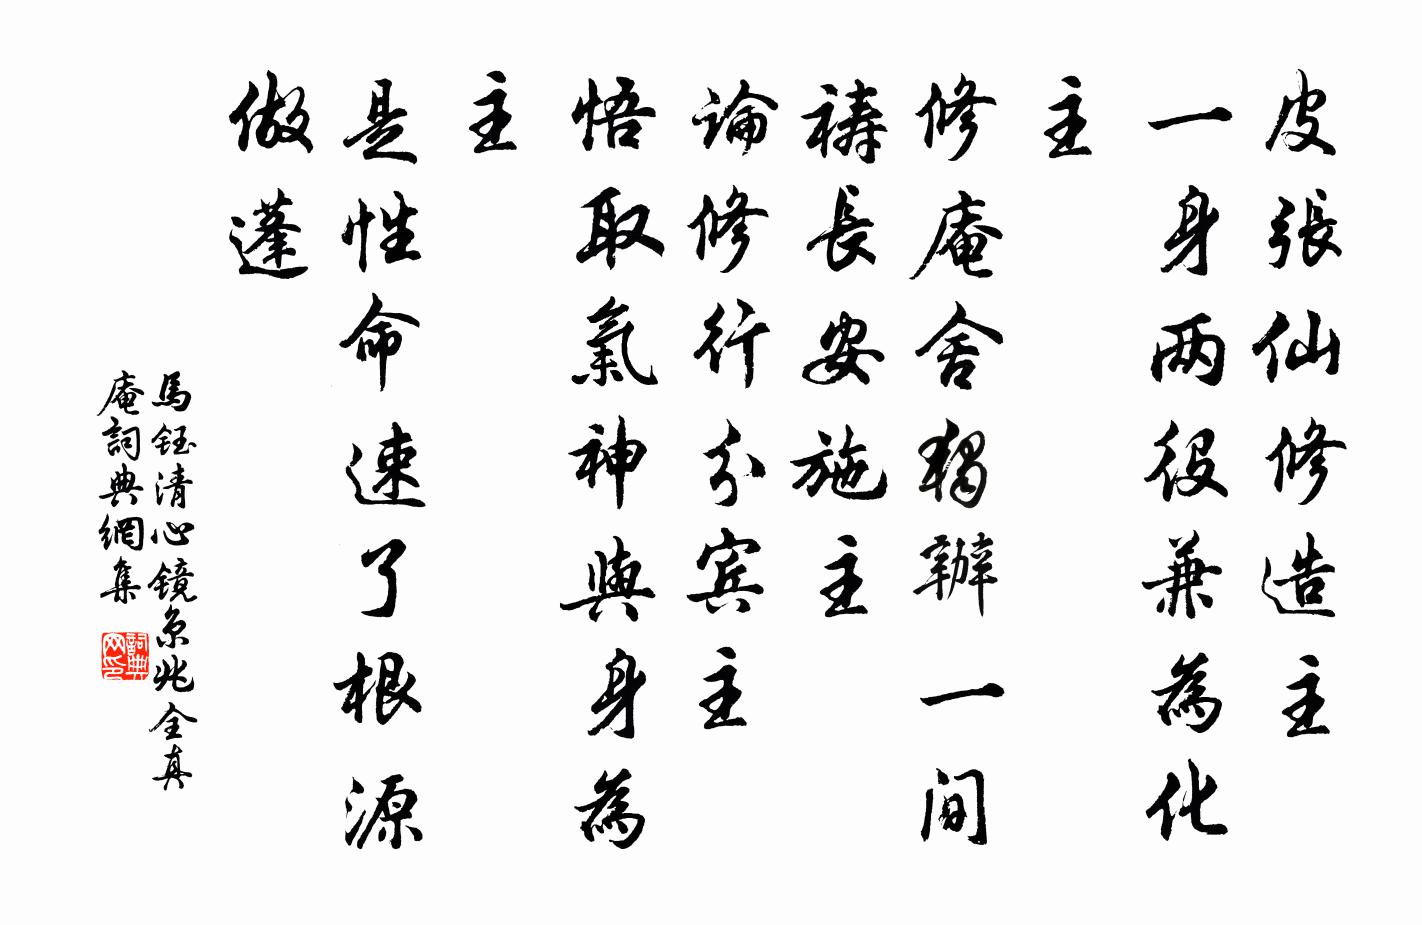 皮張仙修造主
一身两役兼為化
主
修庵舍獨辦一间
禱長安施主
論修行分宾主
悟取氣神與身為
主
是性命速了根源
做蓬
馬鈺清心镜京兆全真
庵詞典網集
詞典
网印